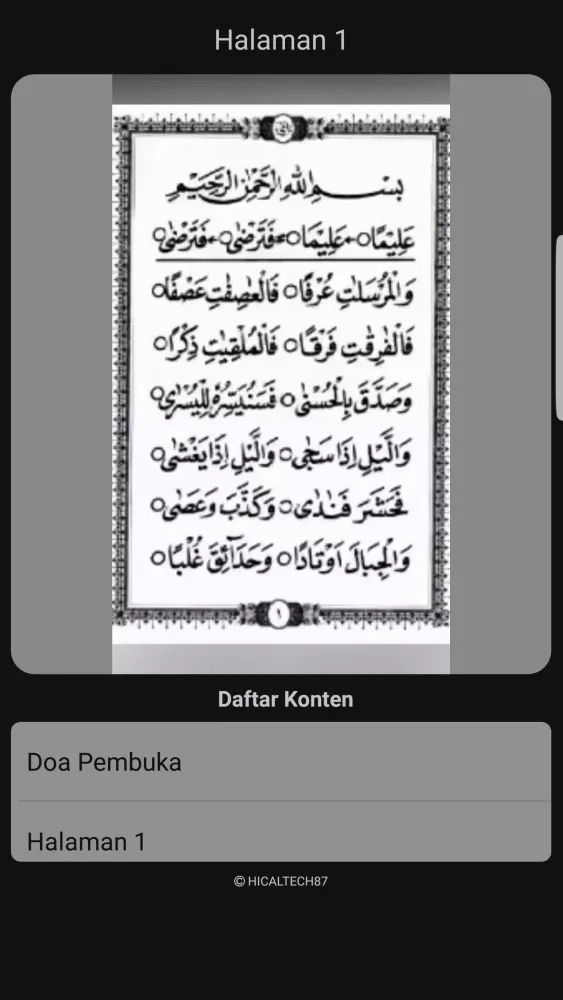 Halaman 1
بِسْمِ اللّٰهِ الرَّحْمٰنِ الرَّحِيْمِ
عَلِيْمًا ۝ عَلِيْمَا ۝ فَتَرْضٰى ۝ فَتَرْضٰى ۝
وَالْمُرْسَلٰتِ عُرْفًا ۝ فَالْعٰصِفٰتِ عَصْفًا ۝
فَالْفٰرِقٰتِ فَرْقًا ۝ فَالْمُلْقِيٰتِ ذِكْرًا ۝
وَصَدَّقَ بِالْحُسْنٰى ۝ فَسَنُيَسِّرُهٗ لِلْيُسْرٰى ۝
وَالَّيْلِ اِذَا سَجٰى ۝ وَالَّيْلِ اِذَا يَغْشٰى ۝
فَحَشَرَ فَنَادٰى ۝ وَكَذَّبَ وَعَصٰى ۝
وَالْجِبَالَ اَوْتَادًا ۝ وَحَدَآئِقَ غُلْبًا ۝
١
Daftar Konten
Doa Pembuka
Halaman 1
© HICALTECH87